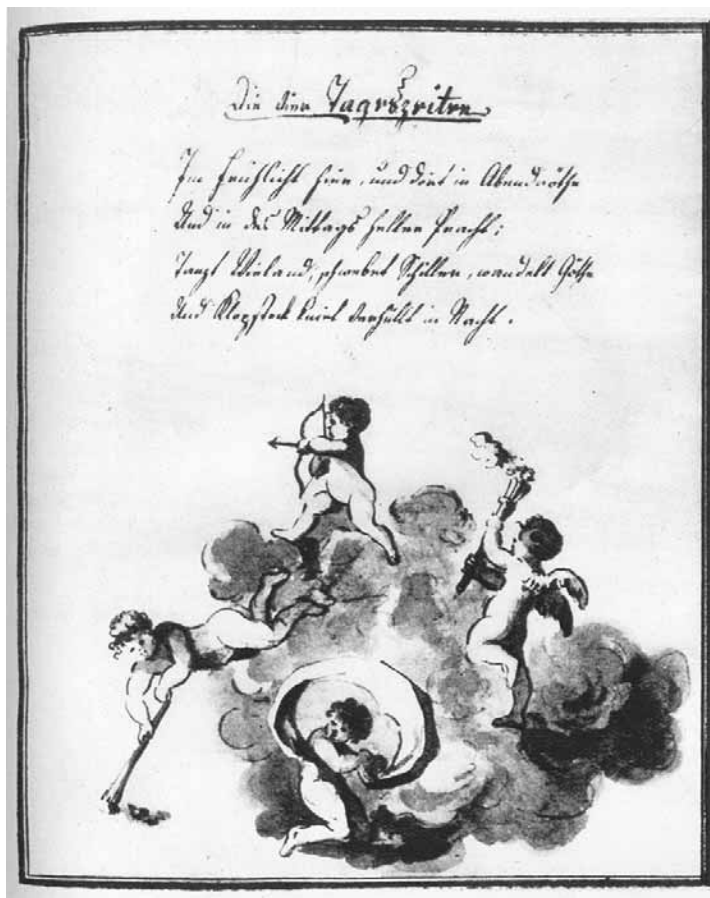 Die vier Tageszeiten
Im Frühlicht hier, und dort in Abendröthe
Und in des Mittags heller Pracht;
Tanzt Wieland, schwebet Schiller, wandelt Göthe
Und Klopstock kniet verhüllt in Nacht.